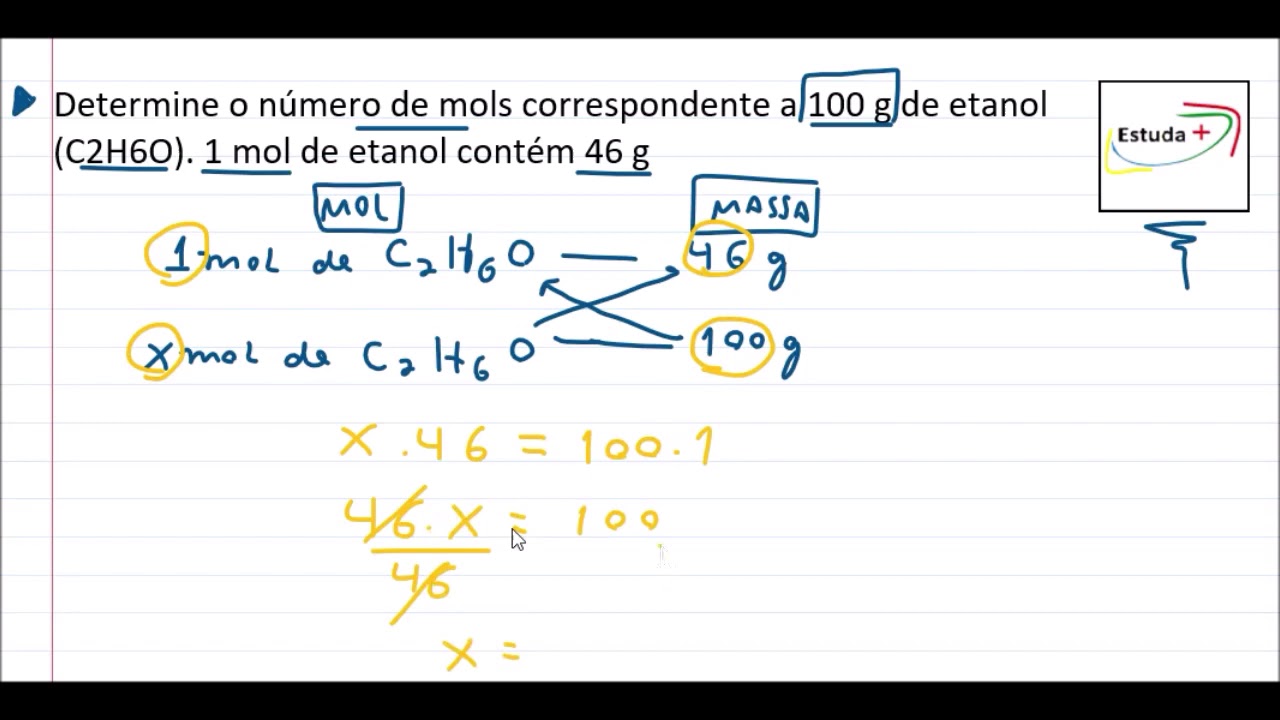 Determine o número de mols correspondente a 100 g de etanol
(C2H6O). 1 mol de etanol contém 46 g
Estuda +
MOL MASSA
1 mol de C₂H₆O — 46 g
x mol de C₂H₆O — 100 g
x . 46 = 100 . 1
46 . x = 100
46
x =